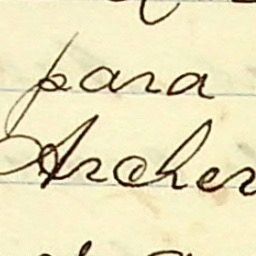 para
Archer